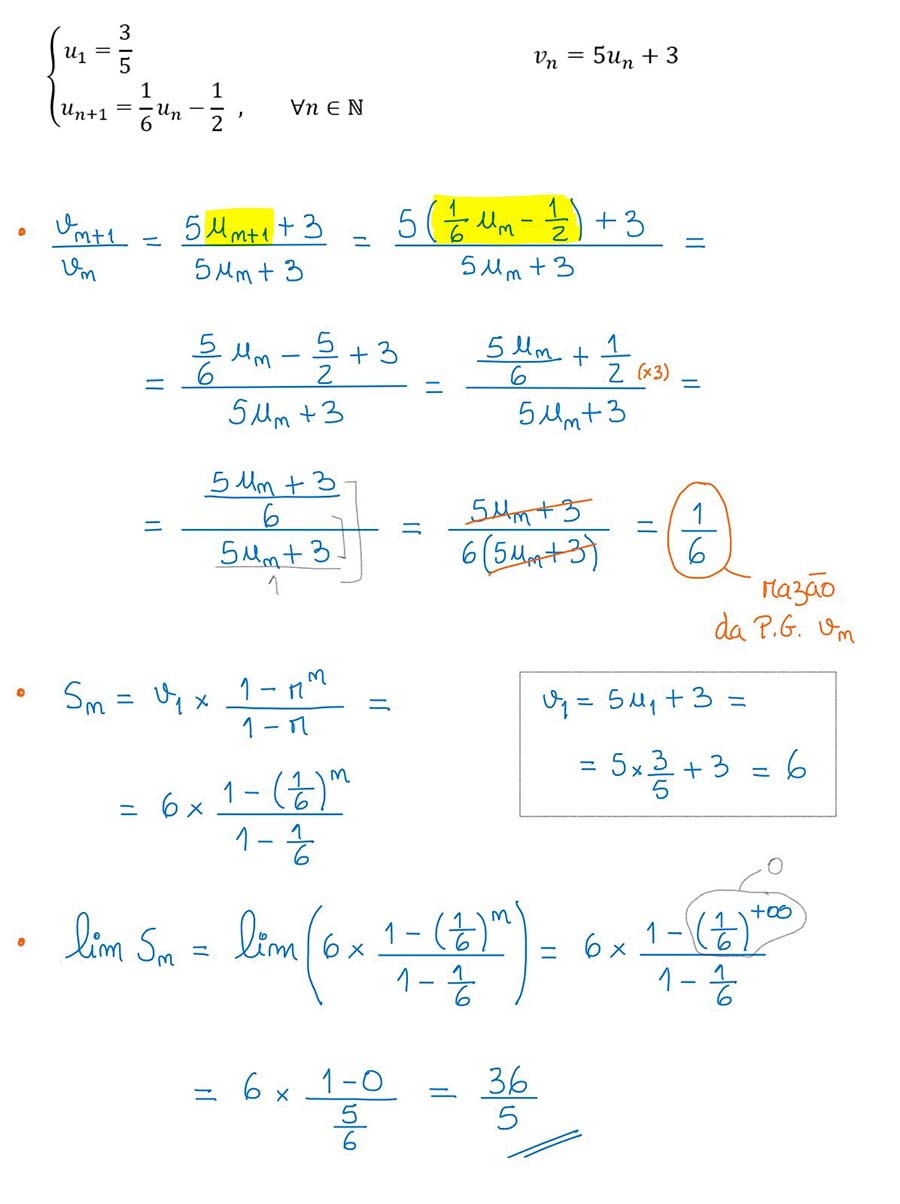 {u₁ = 3/5    vₙ = 5uₙ + 3
{uₙ₊₁ = 1/6 uₙ − 1/2 ,    ∀n ∈ ℕ
• vₙ₊₁/vₙ = (5uₙ₊₁ + 3)/(5uₙ + 3) = (5(1/6 uₙ − 1/2) + 3)/(5uₙ + 3) =
= (5/6 uₙ − 5/2 + 3)/(5uₙ + 3) = (5uₙ/6 + 1/2 (×3))/(5uₙ + 3) =
= ((5uₙ + 3)/6)/((5uₙ + 3)/1) = (5uₙ + 3)/(6(5uₙ + 3)) = 1/6
razão
da P.G. vₙ
• Sₙ = v₁ × (1 − rⁿ)/(1 − r) =
= 6 × (1 − (1/6)ⁿ)/(1 − 1/6)
v₁ = 5u₁ + 3 =
= 5 × 3/5 + 3 = 6
0
• lim Sₙ = lim(6 × (1 − (1/6)ⁿ)/(1 − 1/6)) = 6 × (1 − (1/6)^+∞)/(1 − 1/6)
= 6 × (1 − 0)/(5/6) = 36/5